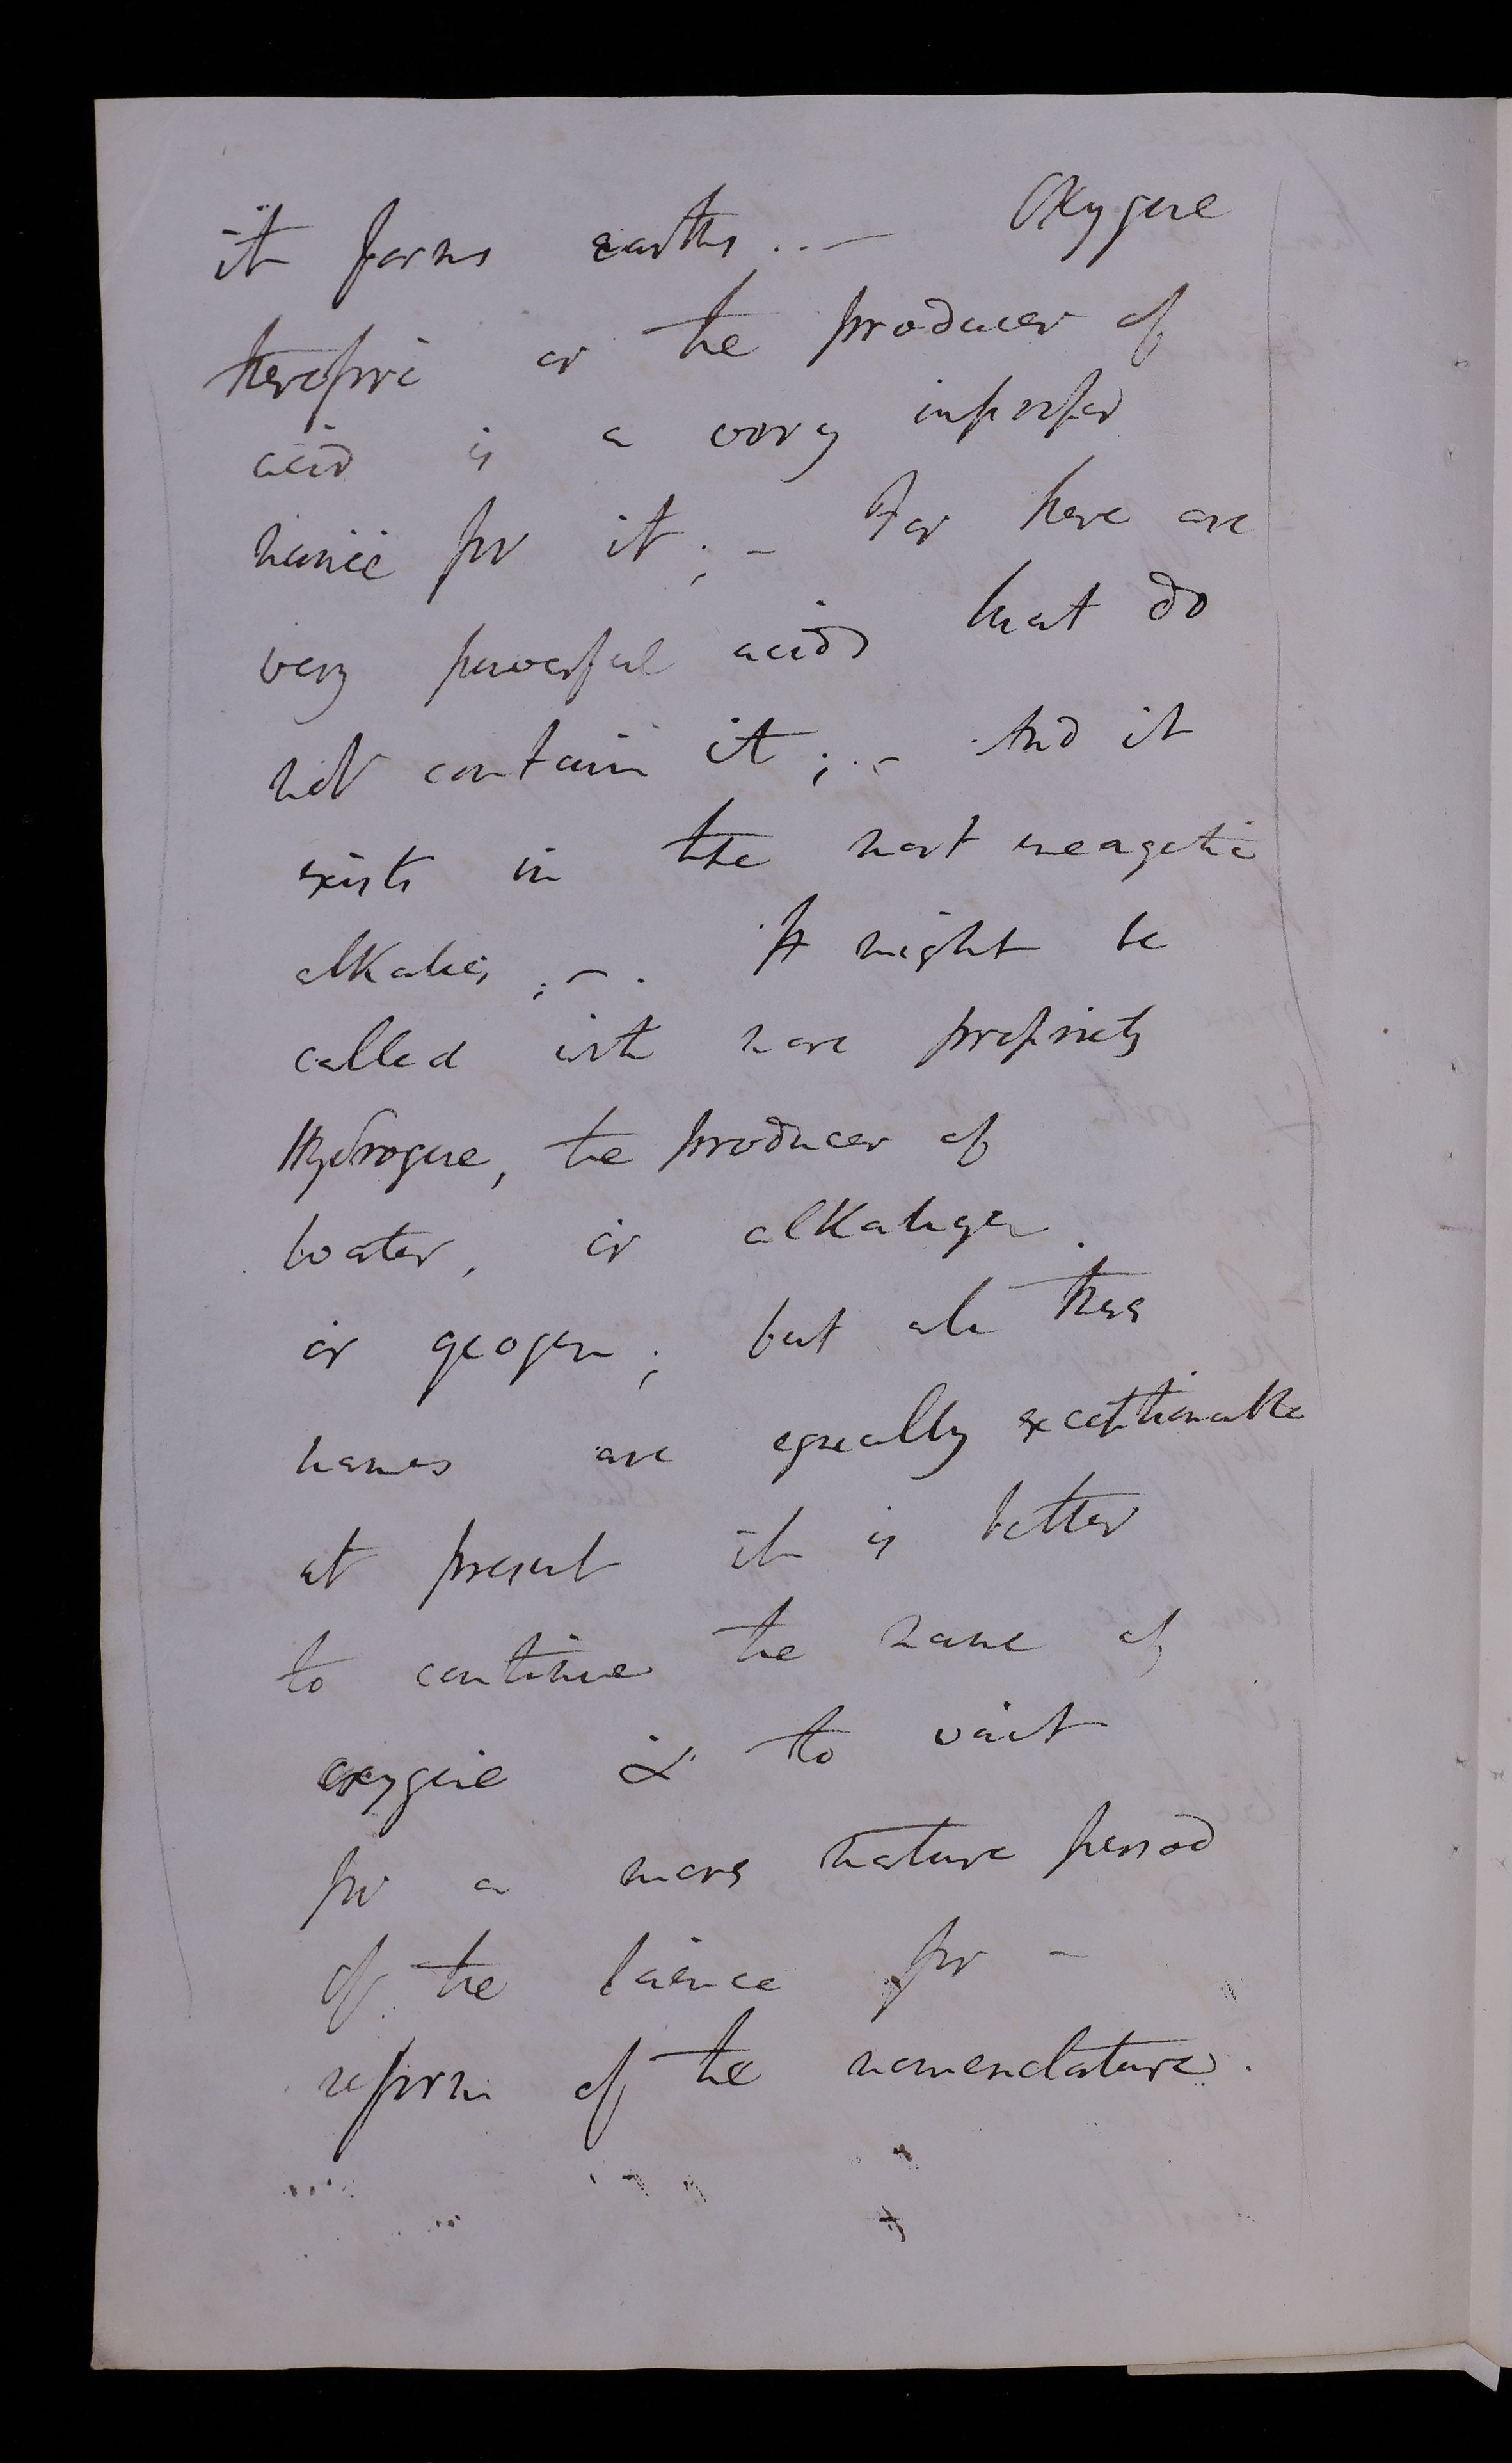 it forms earths. . — Oxygene
therefore or the producer of
acid is a very improper
name for it; — For there are
very powerful acids that do
not contain it; . – And it
exists in the most energetic
alkalies; – . It might be
called with more propriety
Hydrogene, the producer of
water, or alkaligen
or geogen; but all these
names are equally exceptionable
at present it is better
to continue the name of
oxygene & to wait
for a more mature period
of the science for –
reform of the nomenclature.